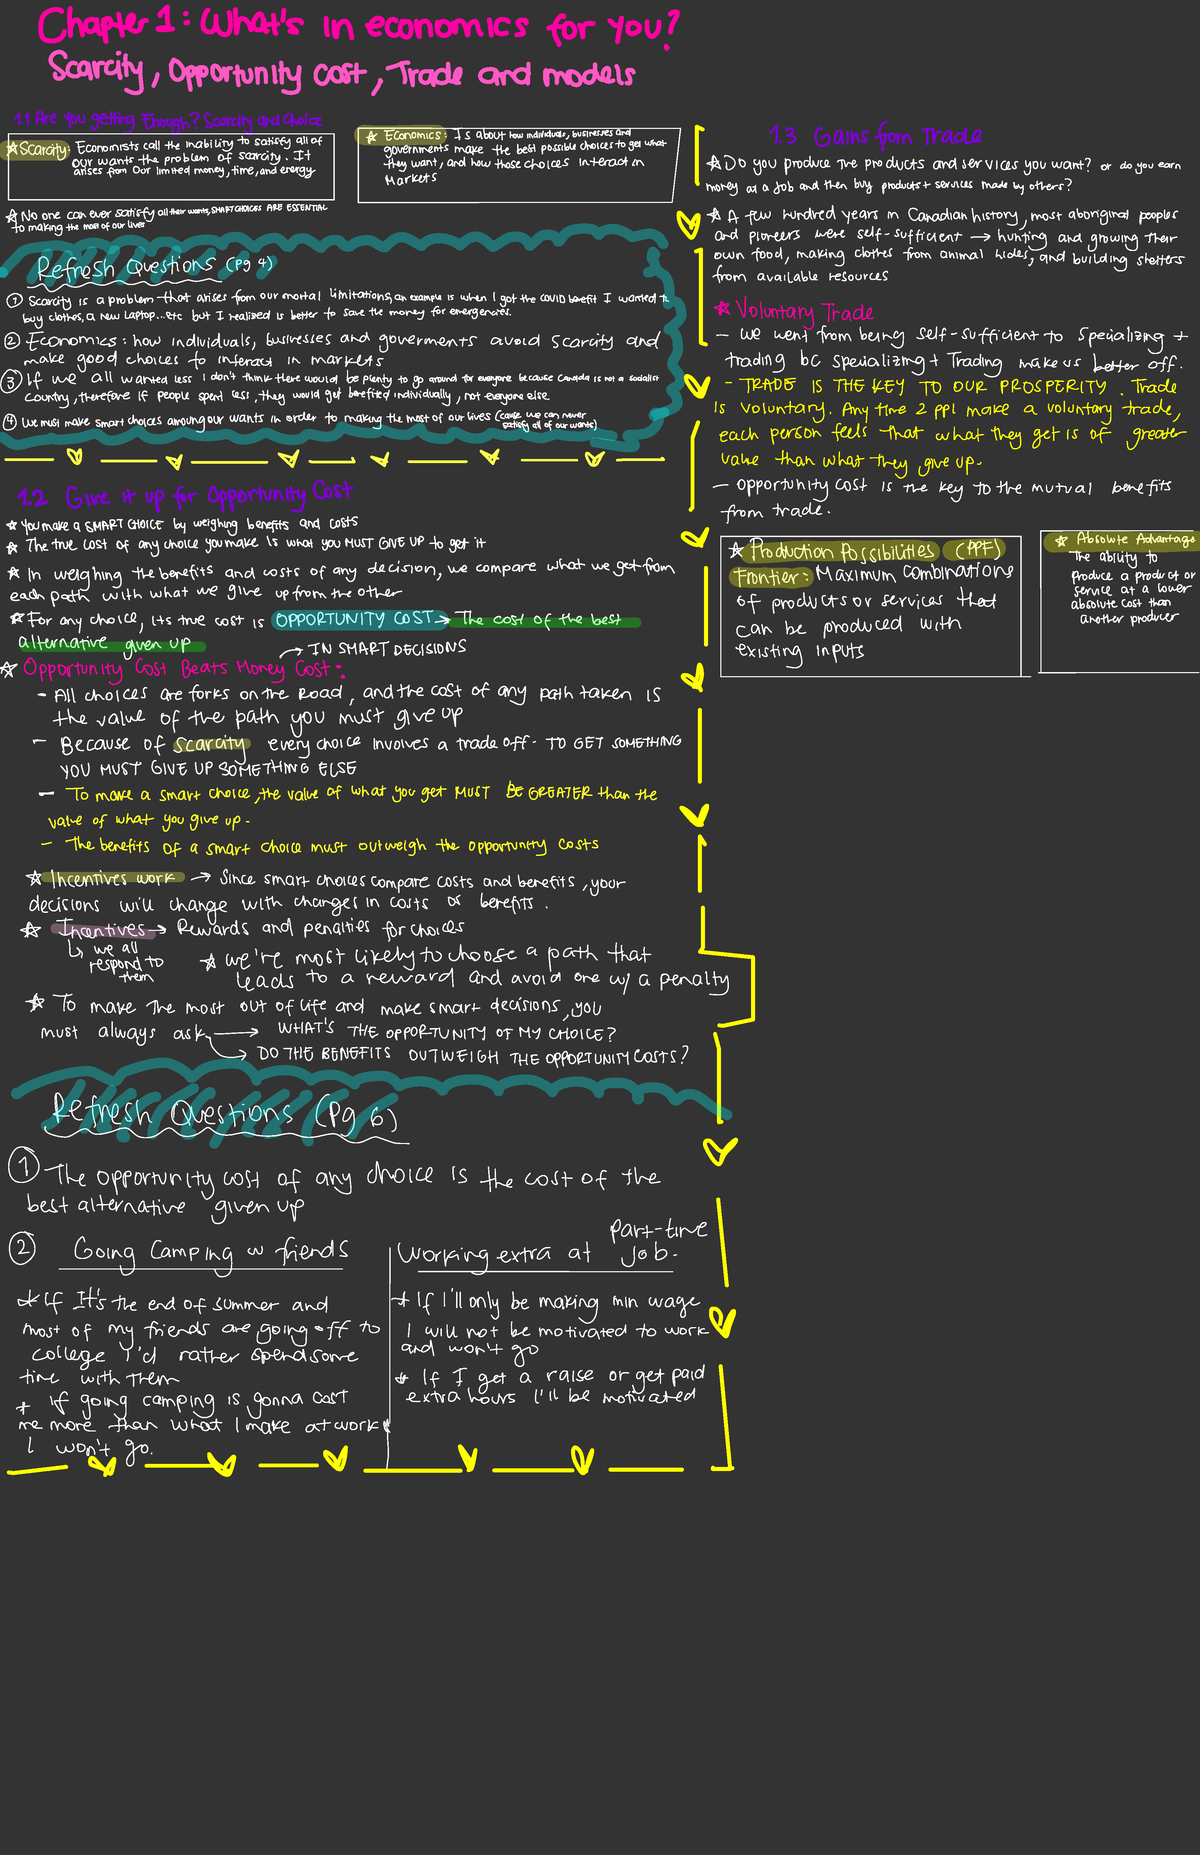 Chapter 1: What's in economics for you?
Scarcity, Opportunity Cost, Trade and models
1.1 Are you getting Enough? Scarcity and Choice
☆ Scarcity: Economists call the inability to satisfy all of
our wants the problem of scarcity. It
arises from our limited money, time, and energy
☆ Economics: Is about how individuals, businesses and
governments make the best possible choices to get what
they want, and how those choices interact in
Markets
☆ No one can ever satisfy all their wants, SMART CHOICES ARE ESSENTIAL
to making the most of our lives
Refresh Questions (Pg 4)
① Scarcity is a problem that arises from our mortal limitations, an example is when I got the COVID benefit I wanted to
buy clothes, a new laptop...etc but I realized is better to save the money for emergencies.
② Economics: how individuals, businesses and goverments avoid scarcity and
make good choices to interact in markets
③ If we all wanted less I don't think there would be plenty to go around for everyone because Canada is not a socialist
country, therefore if people spent less, they would get benefited individually, not everyone else
④ We must make smart choices among our wants in order to making the most of our lives (cause we can never
satisfy all of our wants)
1.2 Give it up for Opportunity Cost
☆ You make a SMART CHOICE by weighing benefits and costs
☆ The true cost of any choice you make is what you MUST GIVE UP to get it
☆ In weighing the benefits and costs of any decision, we compare what we get from
each path with what we give up from the other
☆ For any choice, its true cost is OPPORTUNITY COST → The cost of the best
alternative given up
→ IN SMART DECISIONS
☆ Opportunity Cost Beats Money Cost:
- All choices are forks on the road, and the cost of any path taken is
the value of the path you must give up
- Because of scarcity every choice involves a trade off - TO GET SOMETHING
YOU MUST GIVE UP SOMETHING ELSE
- To make a smart choice, the value of what you get MUST BE GREATER than the
value of what you give up.
- The benefits of a smart choice must outweigh the opportunity costs
☆ Incentives work → Since smart choices compare costs and benefits, your
decisions will change with changes in costs or benefits.
☆ Incentives → Rewards and penalties for choices
↳ we all
respond to
them
☆ we're most likely to choose a path that
leads to a reward and avoid one w/ a penalty
☆ To make the most out of life and make smart decisions, you
must always ask → WHAT'S THE OPPORTUNITY OF MY CHOICE?
→ DO THE BENEFITS OUTWEIGH THE OPPORTUNITY COSTS?
Refresh Questions (Pg 6)
① The opportunity cost of any choice is the cost of the
best alternative given up
② Going Camping w friends
☆ If It's the end of summer and
most of my friends are going off to
college I'd rather spend some
time with them
+ If going camping is gonna cost
me more than what I make at work
I won't go.
Working extra at part-time
job.
☆ If I'll only be making min wage
I will not be motivated to work
and won't go
☆ If I get a raise or get paid
extra hours I'll be motivated
1.3 Gains from Trade
☆ Do you produce the products and services you want? or do you earn
money at a job and then buy products + services made by others?
☆ A few hundred years in Canadian history, most aboriginal peoples
and pioneers were self-sufficient → hunting and growing their
own food, making clothes from animal hides, and building shelters
from available resources
☆ Voluntary Trade
- We went from being self-sufficient to specializing +
trading bc specializing + Trading make us better off.
- TRADE IS THE KEY TO OUR PROSPERITY. Trade
is voluntary. Any time 2 ppl make a voluntary trade,
each person feels that what they get is of greater
value than what they give up.
- opportunity cost is the key to the mutual benefits
from trade.
☆ Production Possibilities (PPF)
Frontier: Maximum combinations
of products or services that
can be produced with
existing inputs
☆ Absolute Advantage
The ability to
produce a product or
service at a lower
absolute cost than
another producer